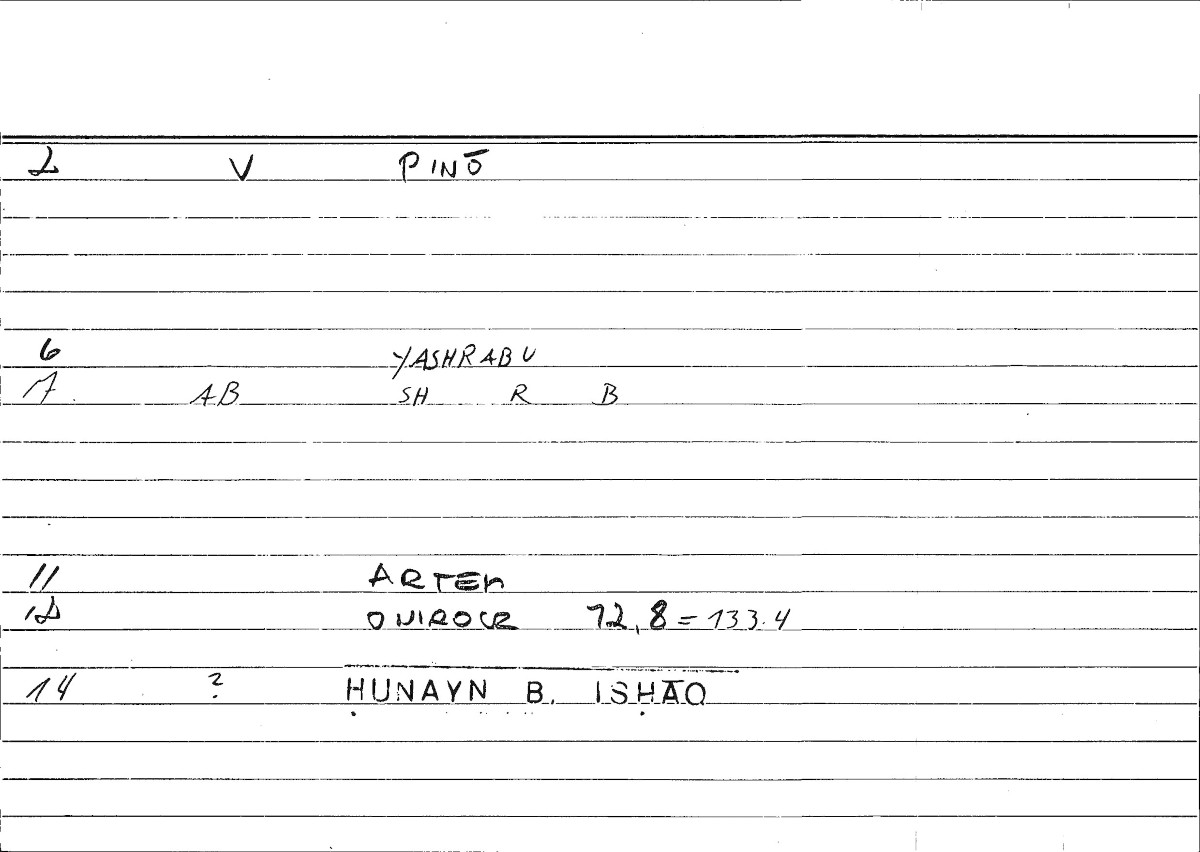 2 V PINŌ
6 YASHRABU
7 AB SH R B
11 ARTEM
12 ONIROCR 72,8 = 133.4
14 ? ḤUNAYN B. ISḤĀQ